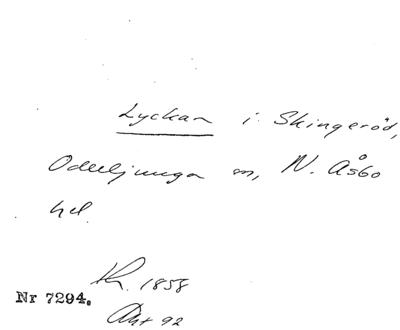 Lyckan i Skingeröd,
Odeljunga sn, N. Åsbo
hd.
Kr. 1858
Nr 7294.
Akt 92